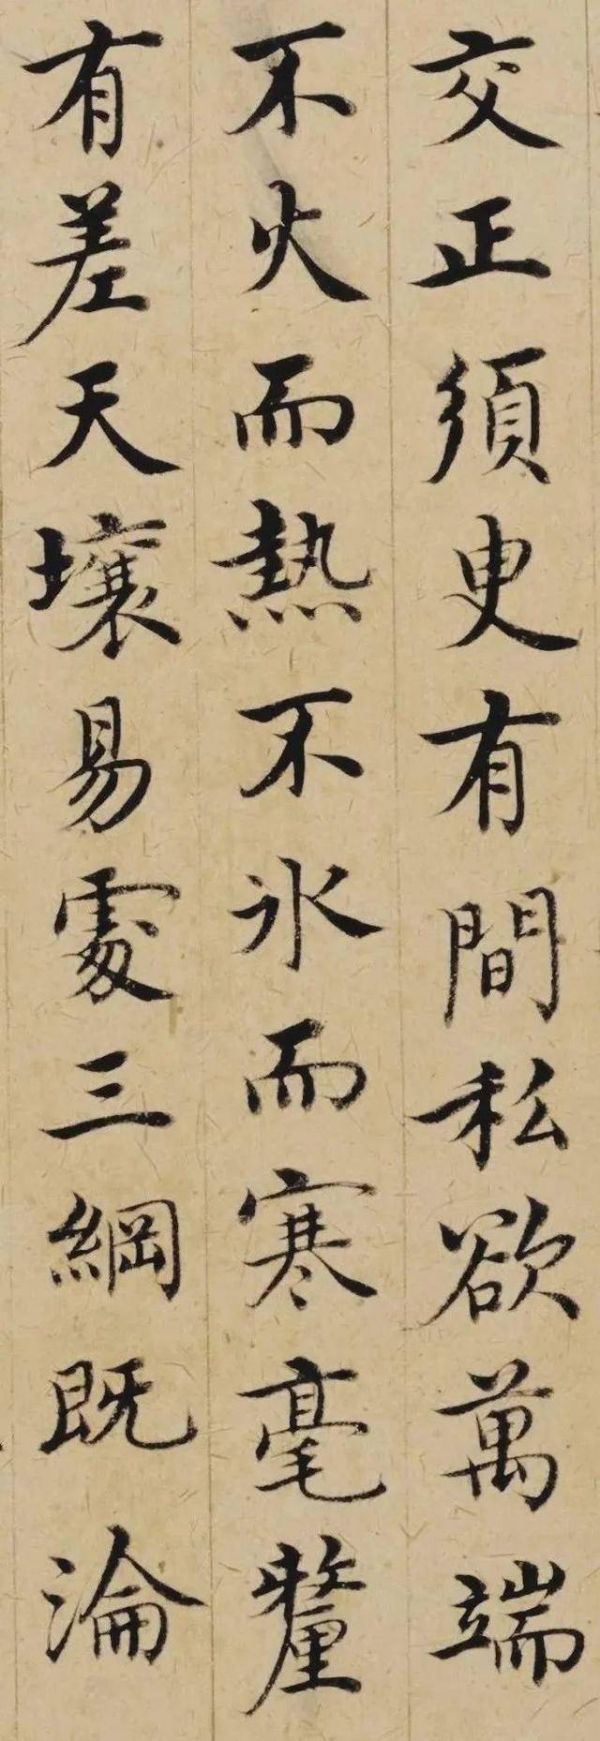 交正須臾有間私欲萬端
不火而熱不氷而寒毫釐
有差天壤易處三綱既淪